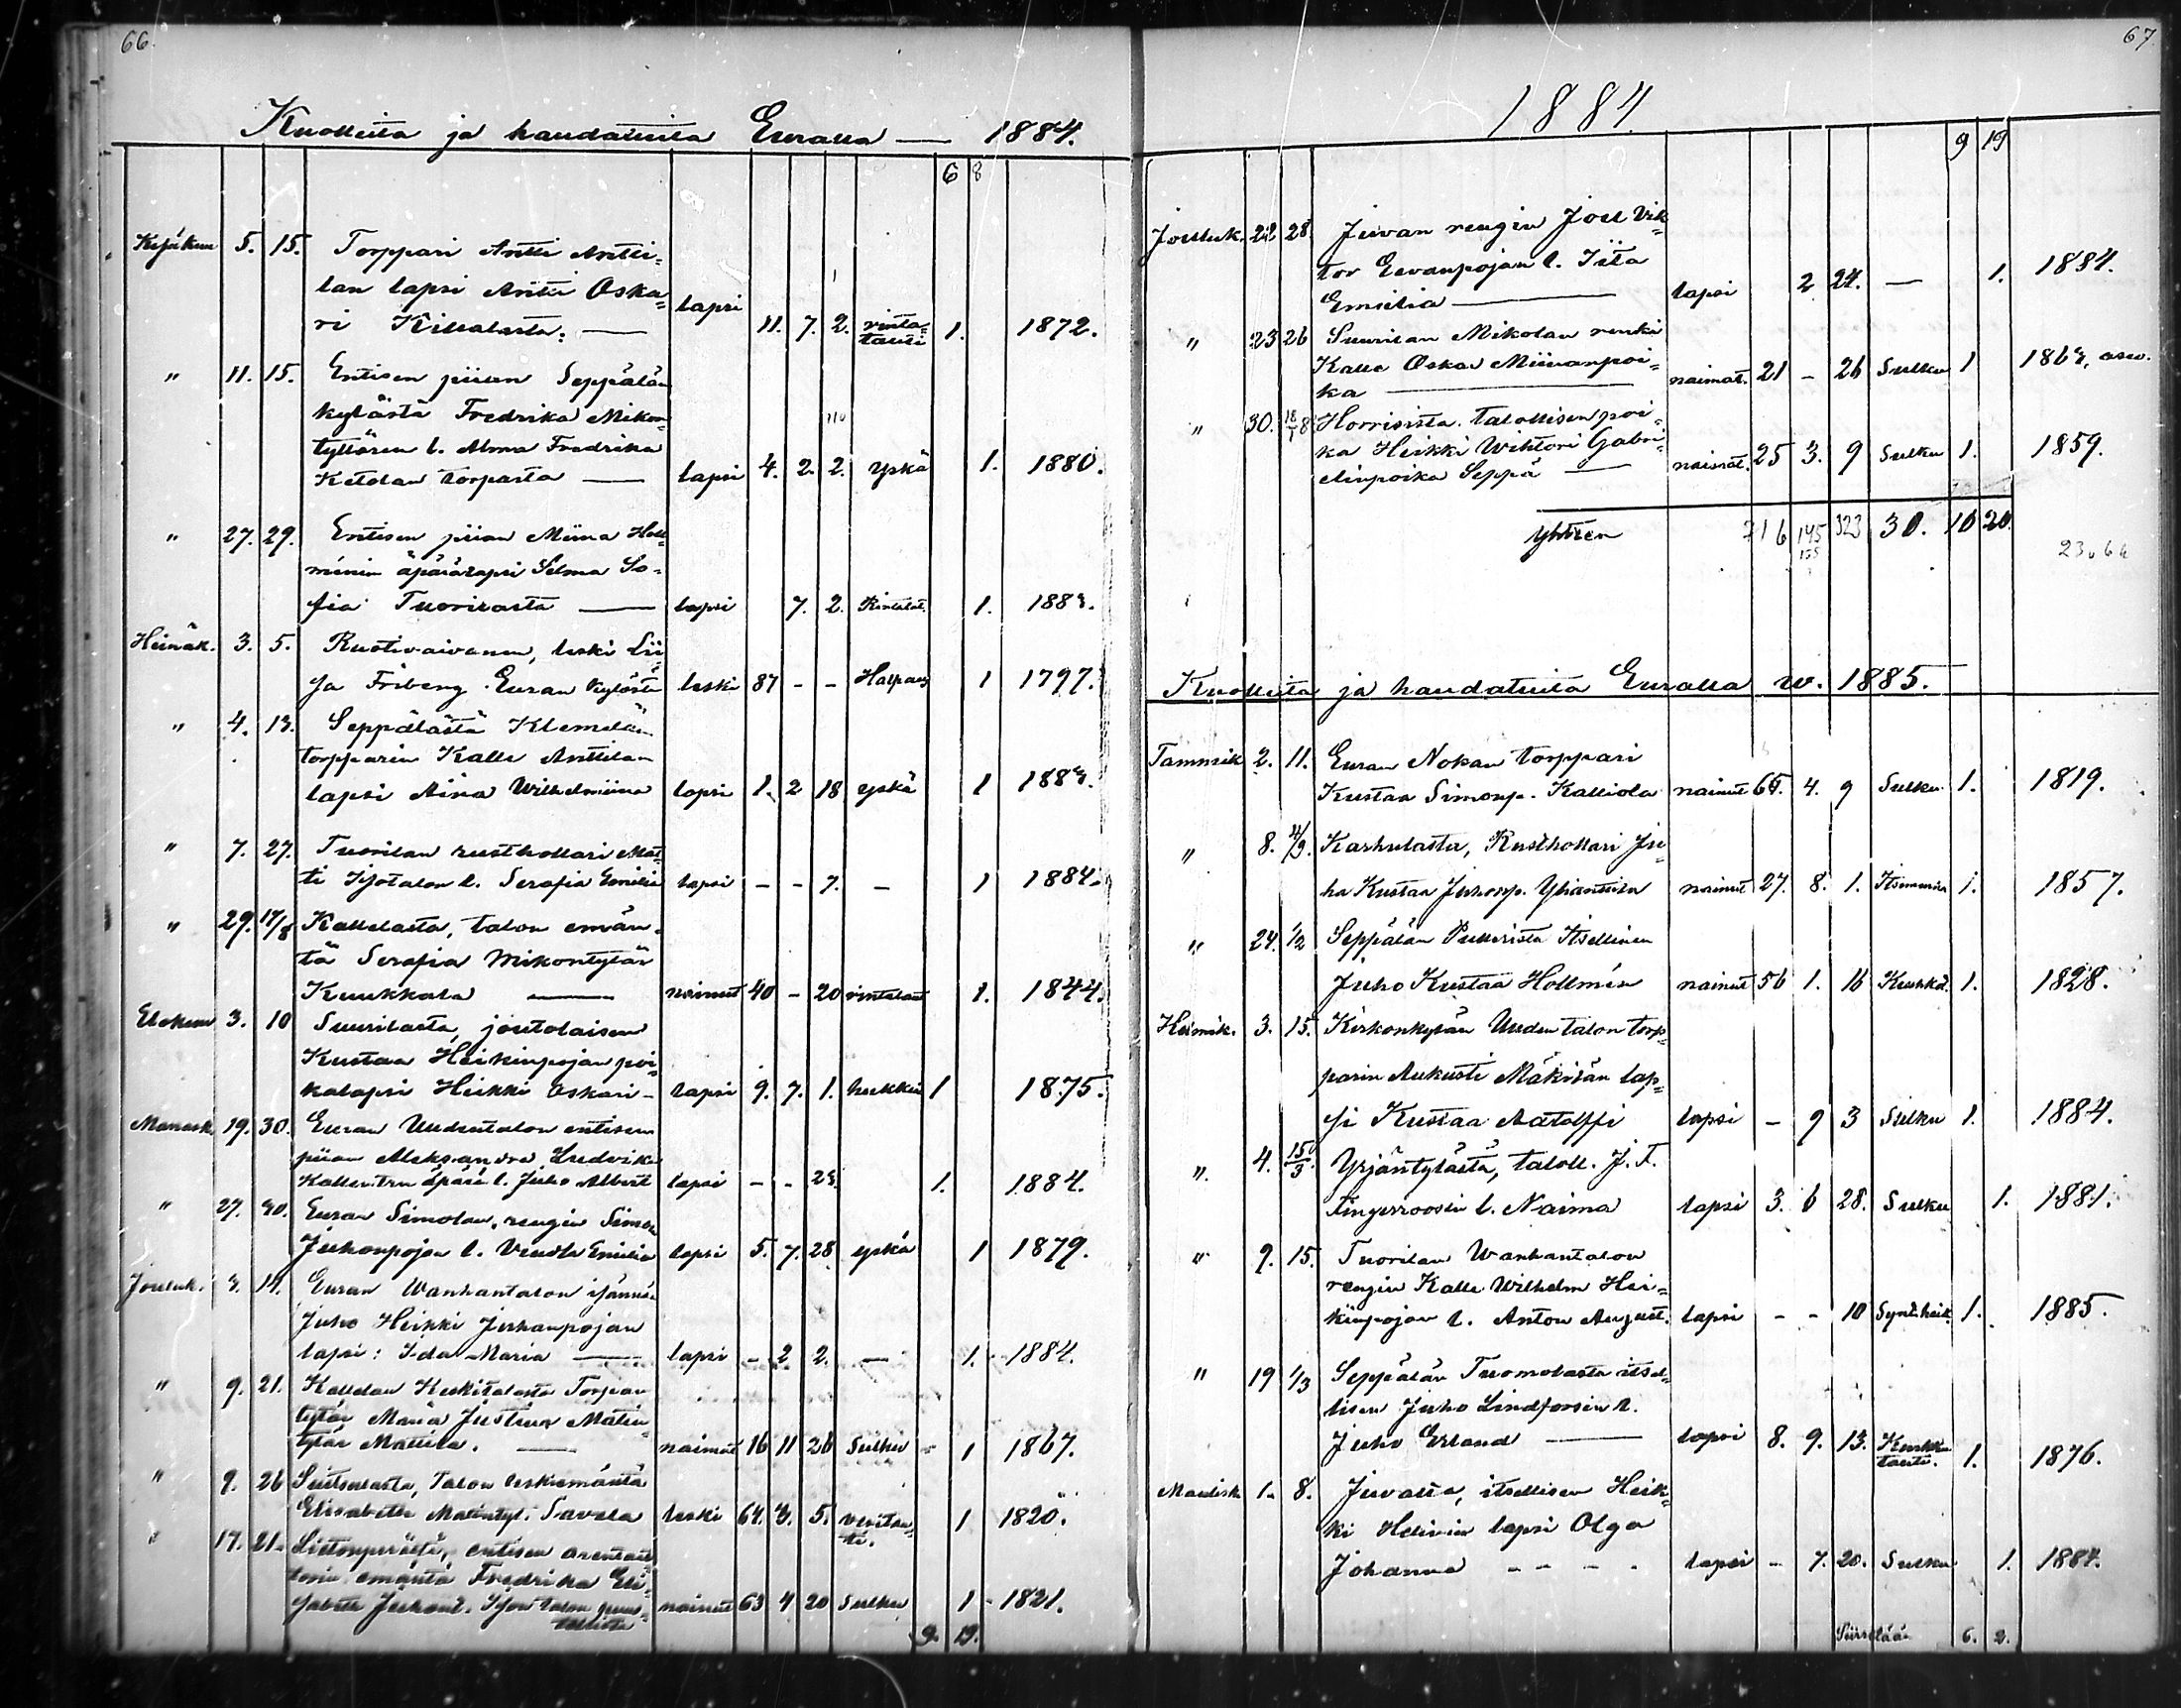 66.
Kuolleita ja haudatuita Euralla — 1884.
6 8
Kesäkuu 5. 15. Torppari Antti Antti-
lan lapsi Antti Oska-
ri lapsi 11. 7. 2. rinta-
tauti 1. 1872.
" 11. 15. Entisen piian Seppälän
kylästä Fredrika Mikon-
tyttären l. Alma Fredrika
Ketolan torpasta — lapsi 4. 2. 2. yskä 1. 1880.
" 27. 29. Entisen piian Miina Holl-
minin äpärälapsi Selma So-
fia Tuorilasta — lapsi 7. 2. Rintataut. 1. 1883.
Heinäk. 3. 5. Ruotivaivanen, leski Lii-
sa Friberg Euran kylästä leski 87 - - Halpaus 1 1797.
" 4. 13. Seppälästä Klemelän
torpparin Kalle Anttilan
lapsi Aina Wilhelmiina lapsi 1. 2 18 yskä 1 1883.
" 7. 27. Tuorilan rusthollari Mat-
ti Isotalon l. Serafia Emilia lapsi - - 7. - 1 1884.
" 29. 17/8 Kallelasta, talon emän-
tä Serafia Mikontytär
Kuukkala — nainut 40 - 20 rintataut 1. 1844.
Elokuu 3. 10 Suurilasta, joutolaisen
Kustaa Heikinpojan poi-
kalapsi Heikki Oskari - lapsi 9. 7. 1. hukkui 1 1875.
Marrask. 19. 30. Euran Uudentalon entisen
piian Aleksandra Ludvika
Kallentru äpärä l. Juho Albert lapsi - - 23. 1. 1884.
" 27. 30. Euran Simolan, rengin Simon
Juhonpojan l. Vendla Emilia lapsi 5. 7. 28 yskä 1 1879.
Jouluk. 3. 14. Euran Wanhantalon isännän
Juho Heikki Juhanpojan
lapsi: Ida Maria — lapsi - 2 2. — 1. 1884.
" 9. 21. Kallelan Keskitalosta Torpan
tytär Maria Justina Matin-
tytär Mattila. — naimat 16 11 26 Sulku - 1 1867.
" 9. 26 Talon leskiemäntä
Elisabeth Matintyt. Savola leski 64. 3. 5. veritau-
ti. 1 1820.
" 17. 21. entisen
emäntä Fredrika Eli-
sabeth Juhont. Ison talon
nainut 63 4 20 Sulku 1 - 1821.
9. 19.
67
1884.
9 19
Jouluk. 22 28. Juvan rengin Joel Vik-
tor Eevanpojan l. Iita
Emilia — lapsi 2 24. — 1. 1884.
" 23 26 Suurilan Mikolan renki
Kalle Oskar Miinanpoi-
ka — naimat. 21 - 26 Sulku 1 1863, asu.
" 30. 18/1 8 Horrisista talollisen poi-
ka Heikki Wihtori Gabri-
elinpoika Seppä — naimat. 25 3. 9 Sulku 1. 1859.
yhteen 716 145 323 30. 10 20.
155
Kuolleita ja haudatuita Euralla w. 1885.
Tammik 2. 11. Euran Nokan torppari
Kustaa Simonp. Kalliola nainut 65. 4. 9 Sulku. 1. 1819.
" 8. Karhulasta, Rusthollari Ju-
ha Kustaa Juhonp. Yhanttila nainut 27. 8. 1. Itsemurha 1. 1857.
" 24. 1/2 Seppälän Pullerista Itsellinen
Juho Kustaa Hollmén nainut 56 1. 16 1. 1828.
Helmik. 3. 15. Kirkonkylän Uuden talon torp-
parin Aukusti Mäkilän lap-
si Kustaa Aatolffi lapsi - 9 3 Sulku 1. 1884.
" 4. 15/3. Yrjäntylästä, taloll. J. F.
Fingerroosin l. Naima lapsi 3. 6 28. Sulku 1. 1881.
" 9. 15. Tuorilan Wanhantalon
rengin Kalle Wilhelm Hei-
kinpojan l. Anton August. lapsi - - 10 Synt.heik. 1. 1885.
" 19 1/3 Seppälän Tuomolasta itsel-
lisen Juho Lindforsin l.
Juho Erland — lapsi 8. 9. 13. Kurkku
tauti. 1. 1876.
Maalisk 1. 8. Juvalta, itsellisen Heik-
ki Helinin lapsi Olga
Johanna - - - - lapsi - 7. 20. Sulku 1. 1884.
Siirretään 6. 2.